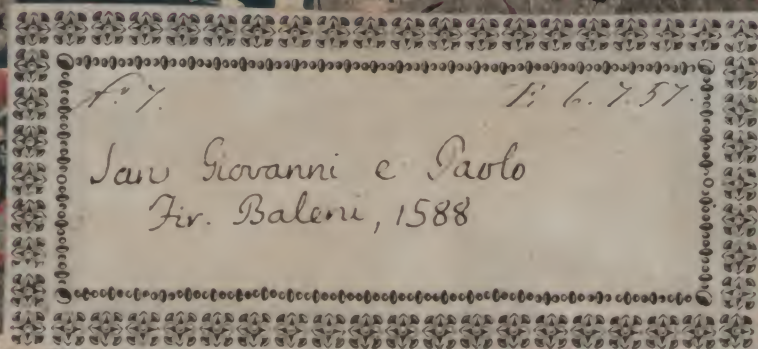 fº 7. E. 6. 7. 57.
San Giovanni e Paolo
Fir. Baleni, 1588